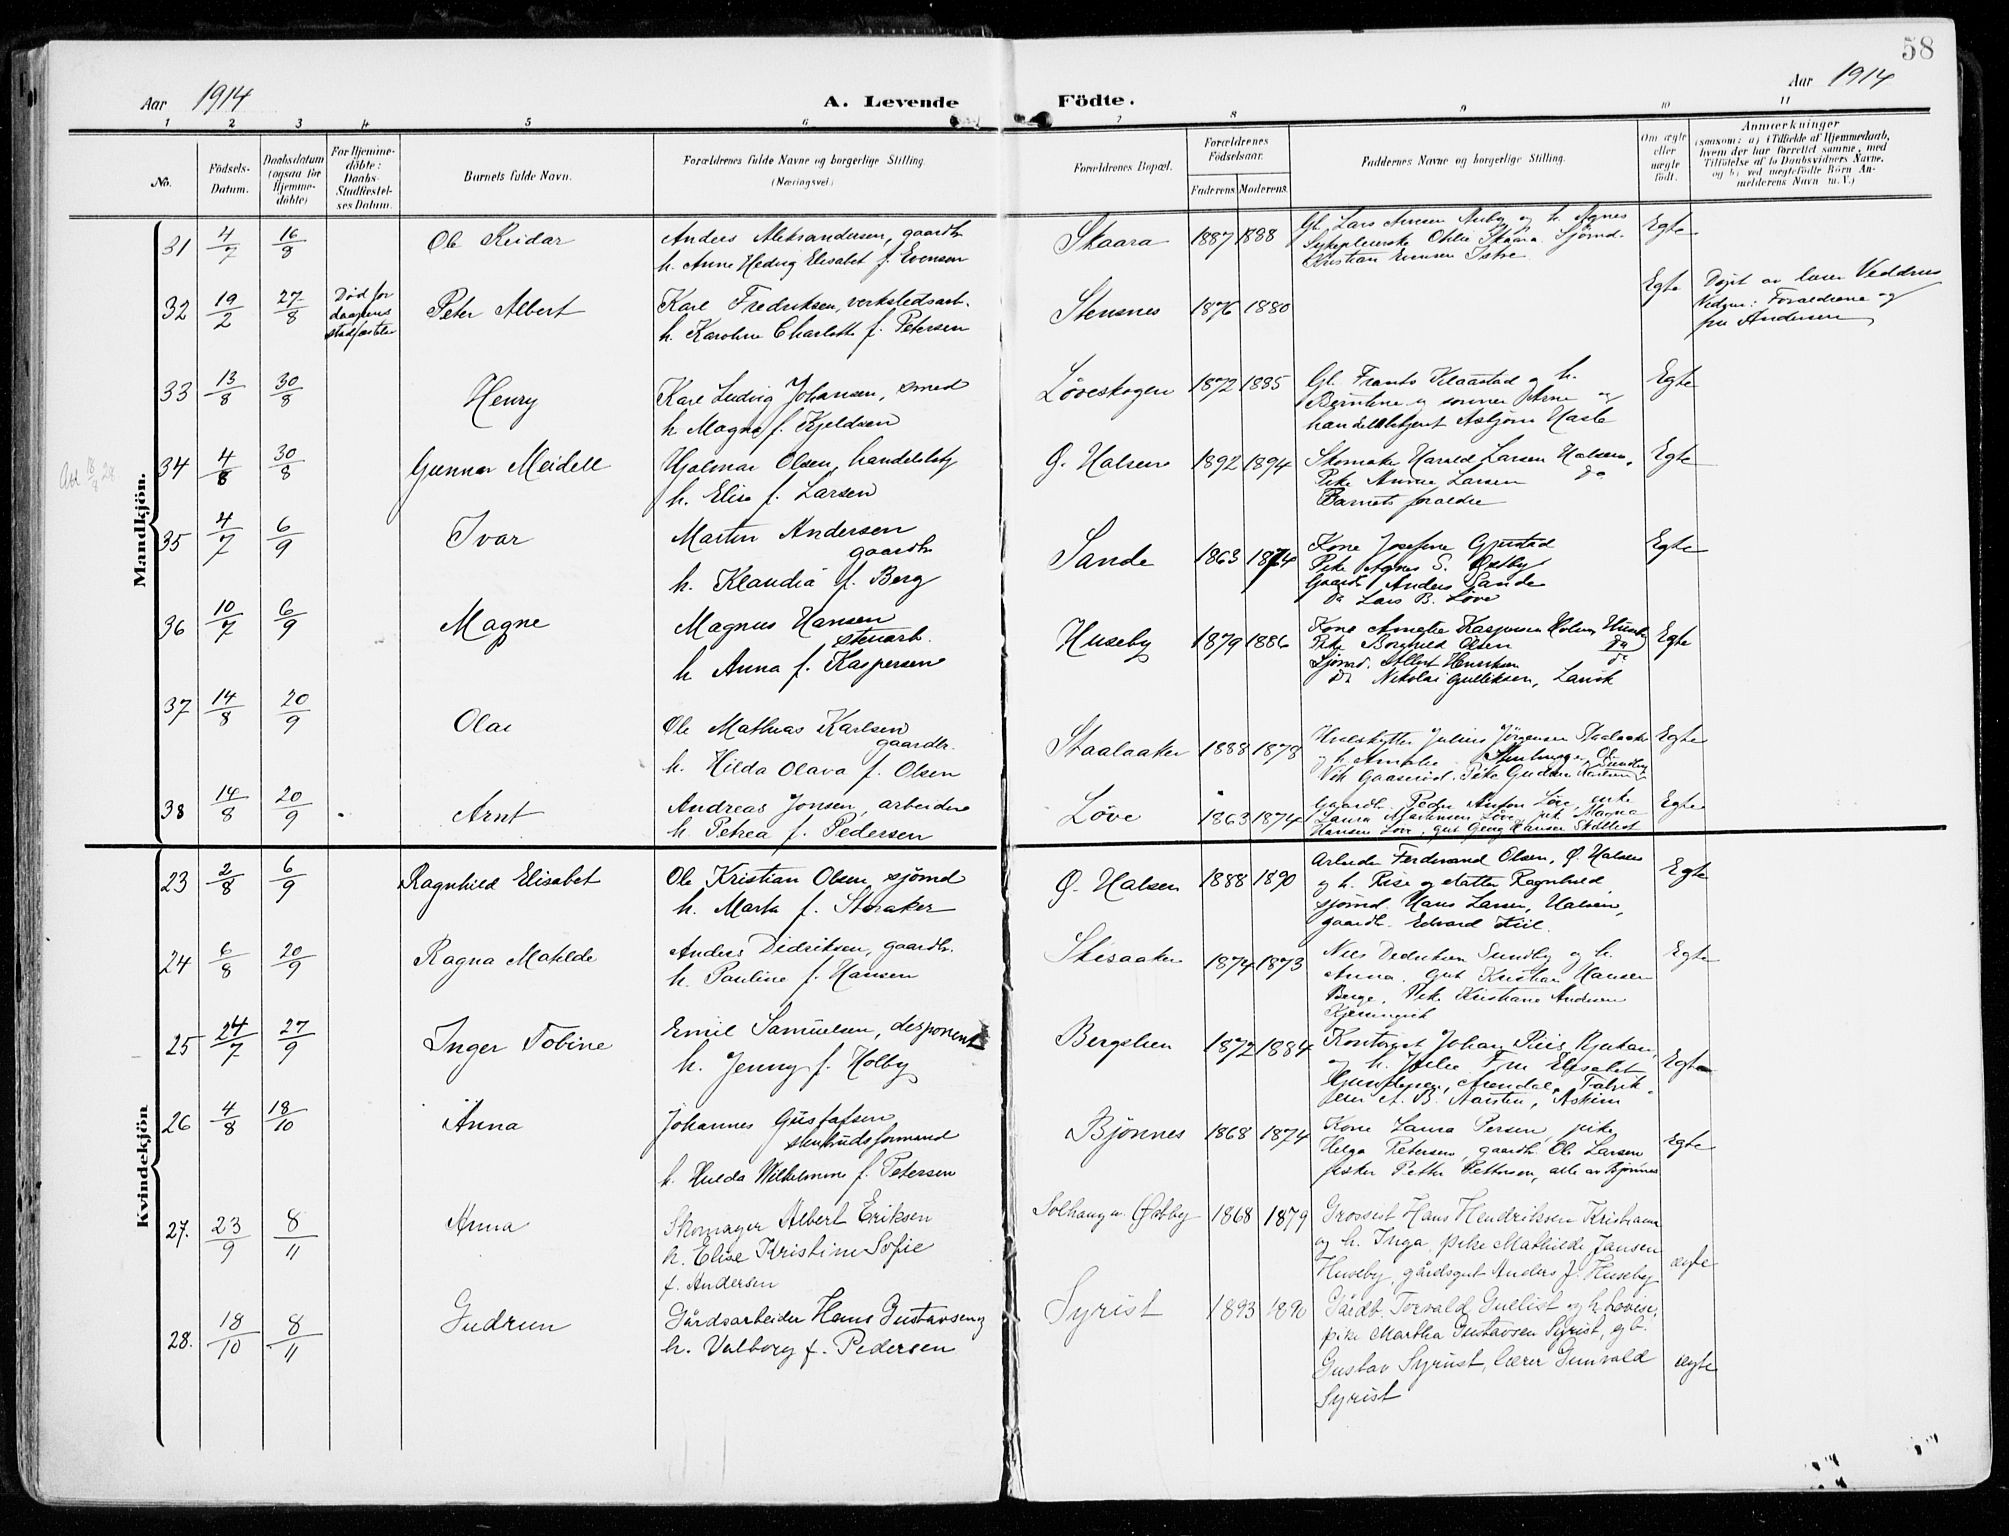 58
Aar 1914
A. Levende Födte.
Aar 1914
1 2 3 4 5 6 7 8 9 10 11
No.
Födsels-
Datum.
Daabsdatum
(ogsaa for
Hjemme-
döbte)
For Hjemme-
döbte:
Daabs-
Stadfæstel-
ses Datum.
Barnets fulde Navn.
Forældrenes fulde Navne og borgerlige Stilling.
(Næringsvei.)
Forældrenes Bopæl.
Forældrenes
Födselsaar.
Faderens. Moderens.
Faddernes Navne og borgerlige Stilling.
Om ægte
eller
uægte
födt.
Anmærkninger
(saasom: a) i Tilfælde af Hjemmedaab,
hvem der har forrettet samme, med
Tilföielse af to Daabsvidners Navne,
og b) ved uægtefödte Börn An-
melderens Navn m. V.)
Mandkjön.
31 4/7 16/8 Ole Reidar
Anders Aleksandersen, gaardbr.
h. Anne Hedvig Elisabet f. Evensen
Skaara 1887 1888
Sykepleierske Othilie Skaara. Sjömd.
Egte
32 19/2 27/8 Død før
daapens
stadfæstelse
Peter Albert
Karl Fredriksen, verkstedsarb.
h. Karoline Charlotte f. Petersen
Stensnes 1876 1880
Egte
Døpt av lærer Veddrus
Vidner: Forældrene og
fru Andersen
33 13/8 30/8 Henry
Karl Ludvig Johansen, smed
h. Magna f. Kjeldsen
Løveskogen 1872 1885
Gl. Frants Klaastad og h.
Berntine og sønner Arne og
handelsbetjent Asbjørn Hasle
Egte
34 4/8 30/8 Gunnar Meidell
Hjalmar Olsen, handelsbetj.
h. Elise f. Larsen
Ø. Halsen 1892 1894
Skomaker Harald Larsen Halsen,
Pike Anna Larsen do
Barnets forældre
Egte
35 4/7 6/9 Ivar
Martin Andersen
gaardbr.
h. Klaudia f. Berg
Sande 1863 1874
Kone Josefine Gjerstad
Pike Agnes S. Østby
Gaardb. Anders Sande
do Lars B. Løve
Egte
36 10/7 6/9 Magne
Magnus Hansen
stenarb.
h Anna f. Kaspersen
Huseby 1879 1886
Kone Anette Kaspersen Holm, Huseby
Pike Borghild Olsen do
Sjömd. Albert Henriksen do
do Nikolai Gulliksen, Larvik
Egte
37 14/8 20/9 Olai
Ole Mathias Karlsen
gaardbr.
h. Hilda Olava f. Olsen
Staalaaker 1888 1878
Hvalskytter Julius Jörgensen Staalaaker
og h. Amalie.
Egte
38 14/8 20/9 Arnt
Andreas Jonsen, arbeider
h. Petrea f. Pedersen
Løve 1863 1874
Gaardb. Peder Anton Löve, enke
Laura Martinsen Löve, pik. Magna
Hansen Löve, gut Georg Hansen
Egte
Kvindekjön
23 2/8 6/9 Ragnhild Elisabet
Ole Kristian Olsen sjömd
h. Marta f. Storaker
Ø. Halsen 1888 1890
Arbeider Ferdinand Olsen, Ø. Halsen
og h. Rise og datter Ragnhild
sjömd. Hans Larsen, Halsen,
gaardb. Edvard
Egte
24 6/8 20/9 Ragna Matilde
Anders Didriksen, gaardbr.
h. Pauline f. Hansen
Skisaaker 1874 1873
Niels Dedriksen Sundby og h.
Anna. Gut Kristian Hansen
Berge, Pike Kristiane Andersen
Egte
25 24/7 27/9 Inger Tobine
Emil Samuelsen, disponent
h. Jenny f. Holby
Bergslien 1872 1884
Kontorist Johan Riis Rjukan,
og h. Julie. Fru Elisabet
Arendal. Fabrik-
Egte
26 4/8 18/10 Anna
Johannes Gustafsen
stenbrudsformand
h. Hulda Wilhelmine f. Petersen
Bjönnes 1868 1874
Kone Laura Persen, pike
Helga Petersen, gaardb. Ole Larsen
fisker Petter Pettersen, alle av Bjönnes
Egte
27. 23/9 8/11 Anna
Skomager Albert Eriksen
h. Elise Kristine Sofie
f. Andersen
Solhaug u. Østby 1868 1879
Grosserer Hans Hendriksen Kristiania
og h. Inga, pike Mathilde Jansen
Huseby, gårdsgut Anders J. Huseby
ægte
28. 18/10 8/11 Gudrun
Gårdsarbeider Hans Gustavsen og
h. Valborg f. Pedersen
Syrist 1893 1890
Gårdb. Torvald Gullist og h Lovise,
pike Martha Gustavsen Syrist, gb.
Gustav Syrist, lærer Gunvald
Syrist
ægte